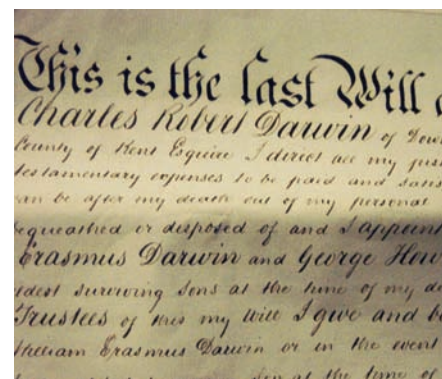 This is the last Will
Charles Robert Darwin of Down
County of Kent Esquire I direct all my just
testamentary expenses to be paid and satis
can be after my death out of my personal
bequeathed or disposed of and I appoint
Erasmus Darwin and George How
eldest surviving sons at the time of my de
Trustees of this my Will I give and be
William Erasmus Darwin or in the event
son at the time of